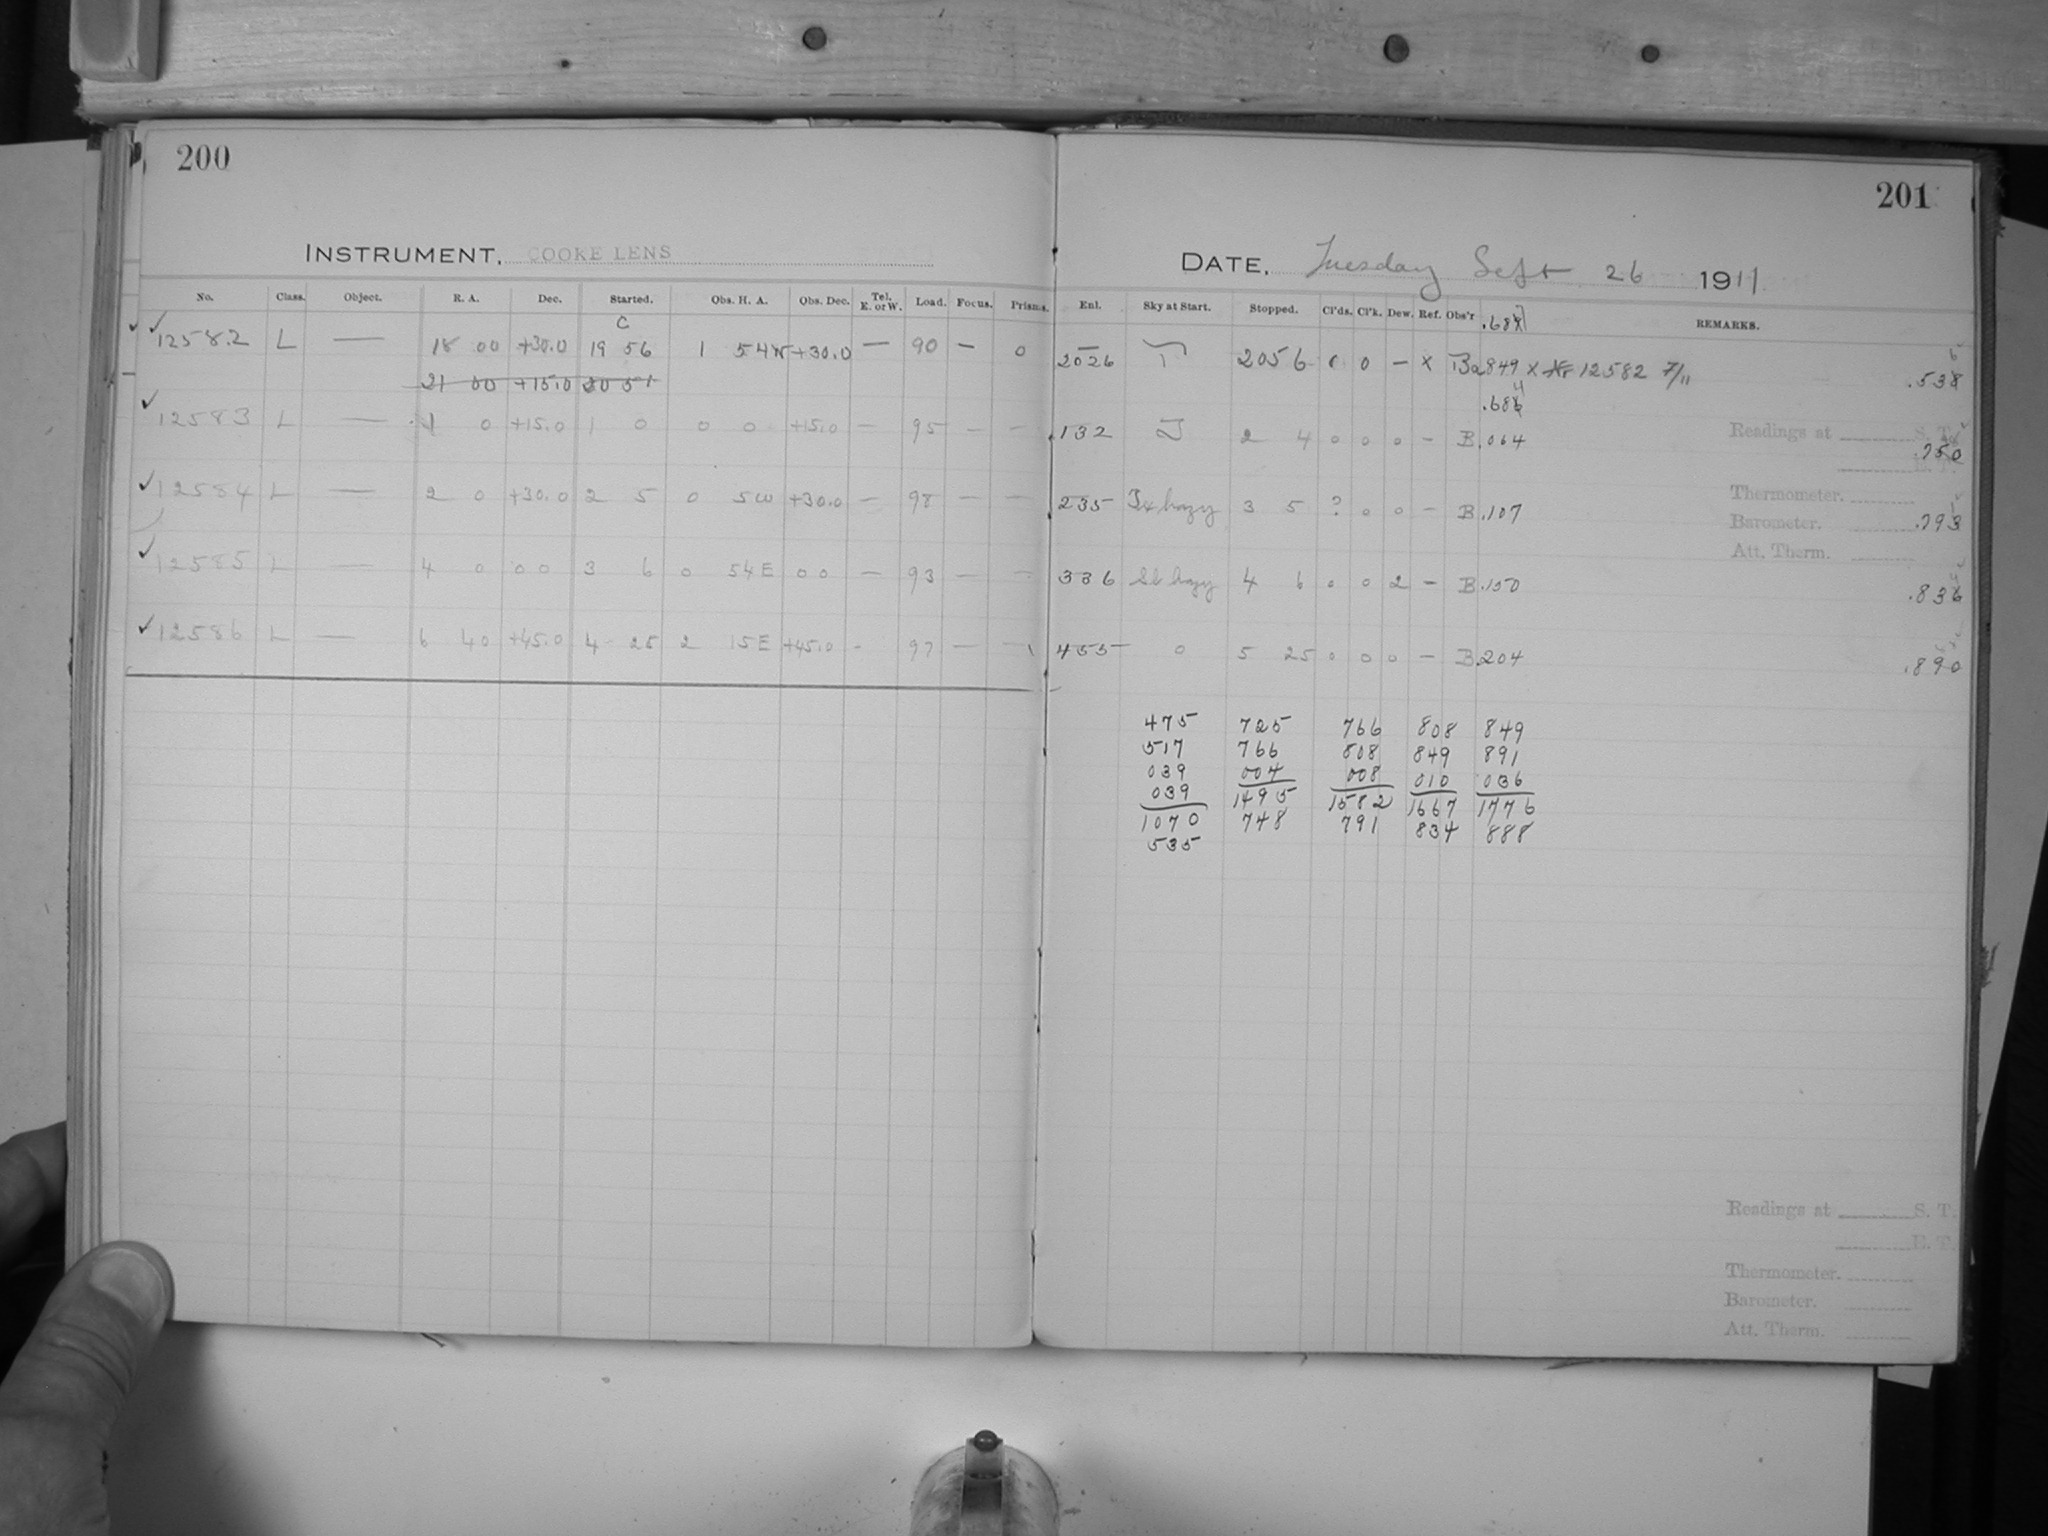 200
INSTRUMENT. COOKE LENS
No. Class. Object. R. A. Dec. Started. Obs. H. A. Obs. Dec. Tel. E. or W. Load. Focus. Prisms.
C
12582 L — 18 00 +30.0 19 56 1 54W +30.0 — 90 — 0
21 00 +15.0 20 51
12583 L — 1 0 +15.0 1 0 0 0 +15.0 — 95 — —
12584 L — 2 0 +30.0 2 5 0 5W +30.0 — 98 — —
12585 L — 4 0 0 0 3 6 0 54E 0 0 — 93 — —
12586 L — 6 40 +45.0 4 25 2 15E +45.0 - 97 — —
201
DATE. Tuesday Sept 26 1911
Enl. Sky at Start. Stopped. Cl'ds. Cl'k. Dew. Ref. Obs'r REMARKS.
2026 2056 0 0 — x Ba .849 x 12582 7/11
132 2 4 0 0 0 - B .064
Readings at S. T.
235 hazy 3 5 ? 0 0 - B .107
Thermometer.
Barometer.
Att. Therm.
336 Sl hazy 4 6 0 0 2 - B .150
455 0 5 25 0 0 0 — B .204
475 725 766 808 849
517 766 808 849 891
039 004 008 010 036
039 1495 1582 1667 1776
1070 748 791 834 888
535
Readings at S. T.
E. T.
Thermometer.
Barometer.
Att. Therm.